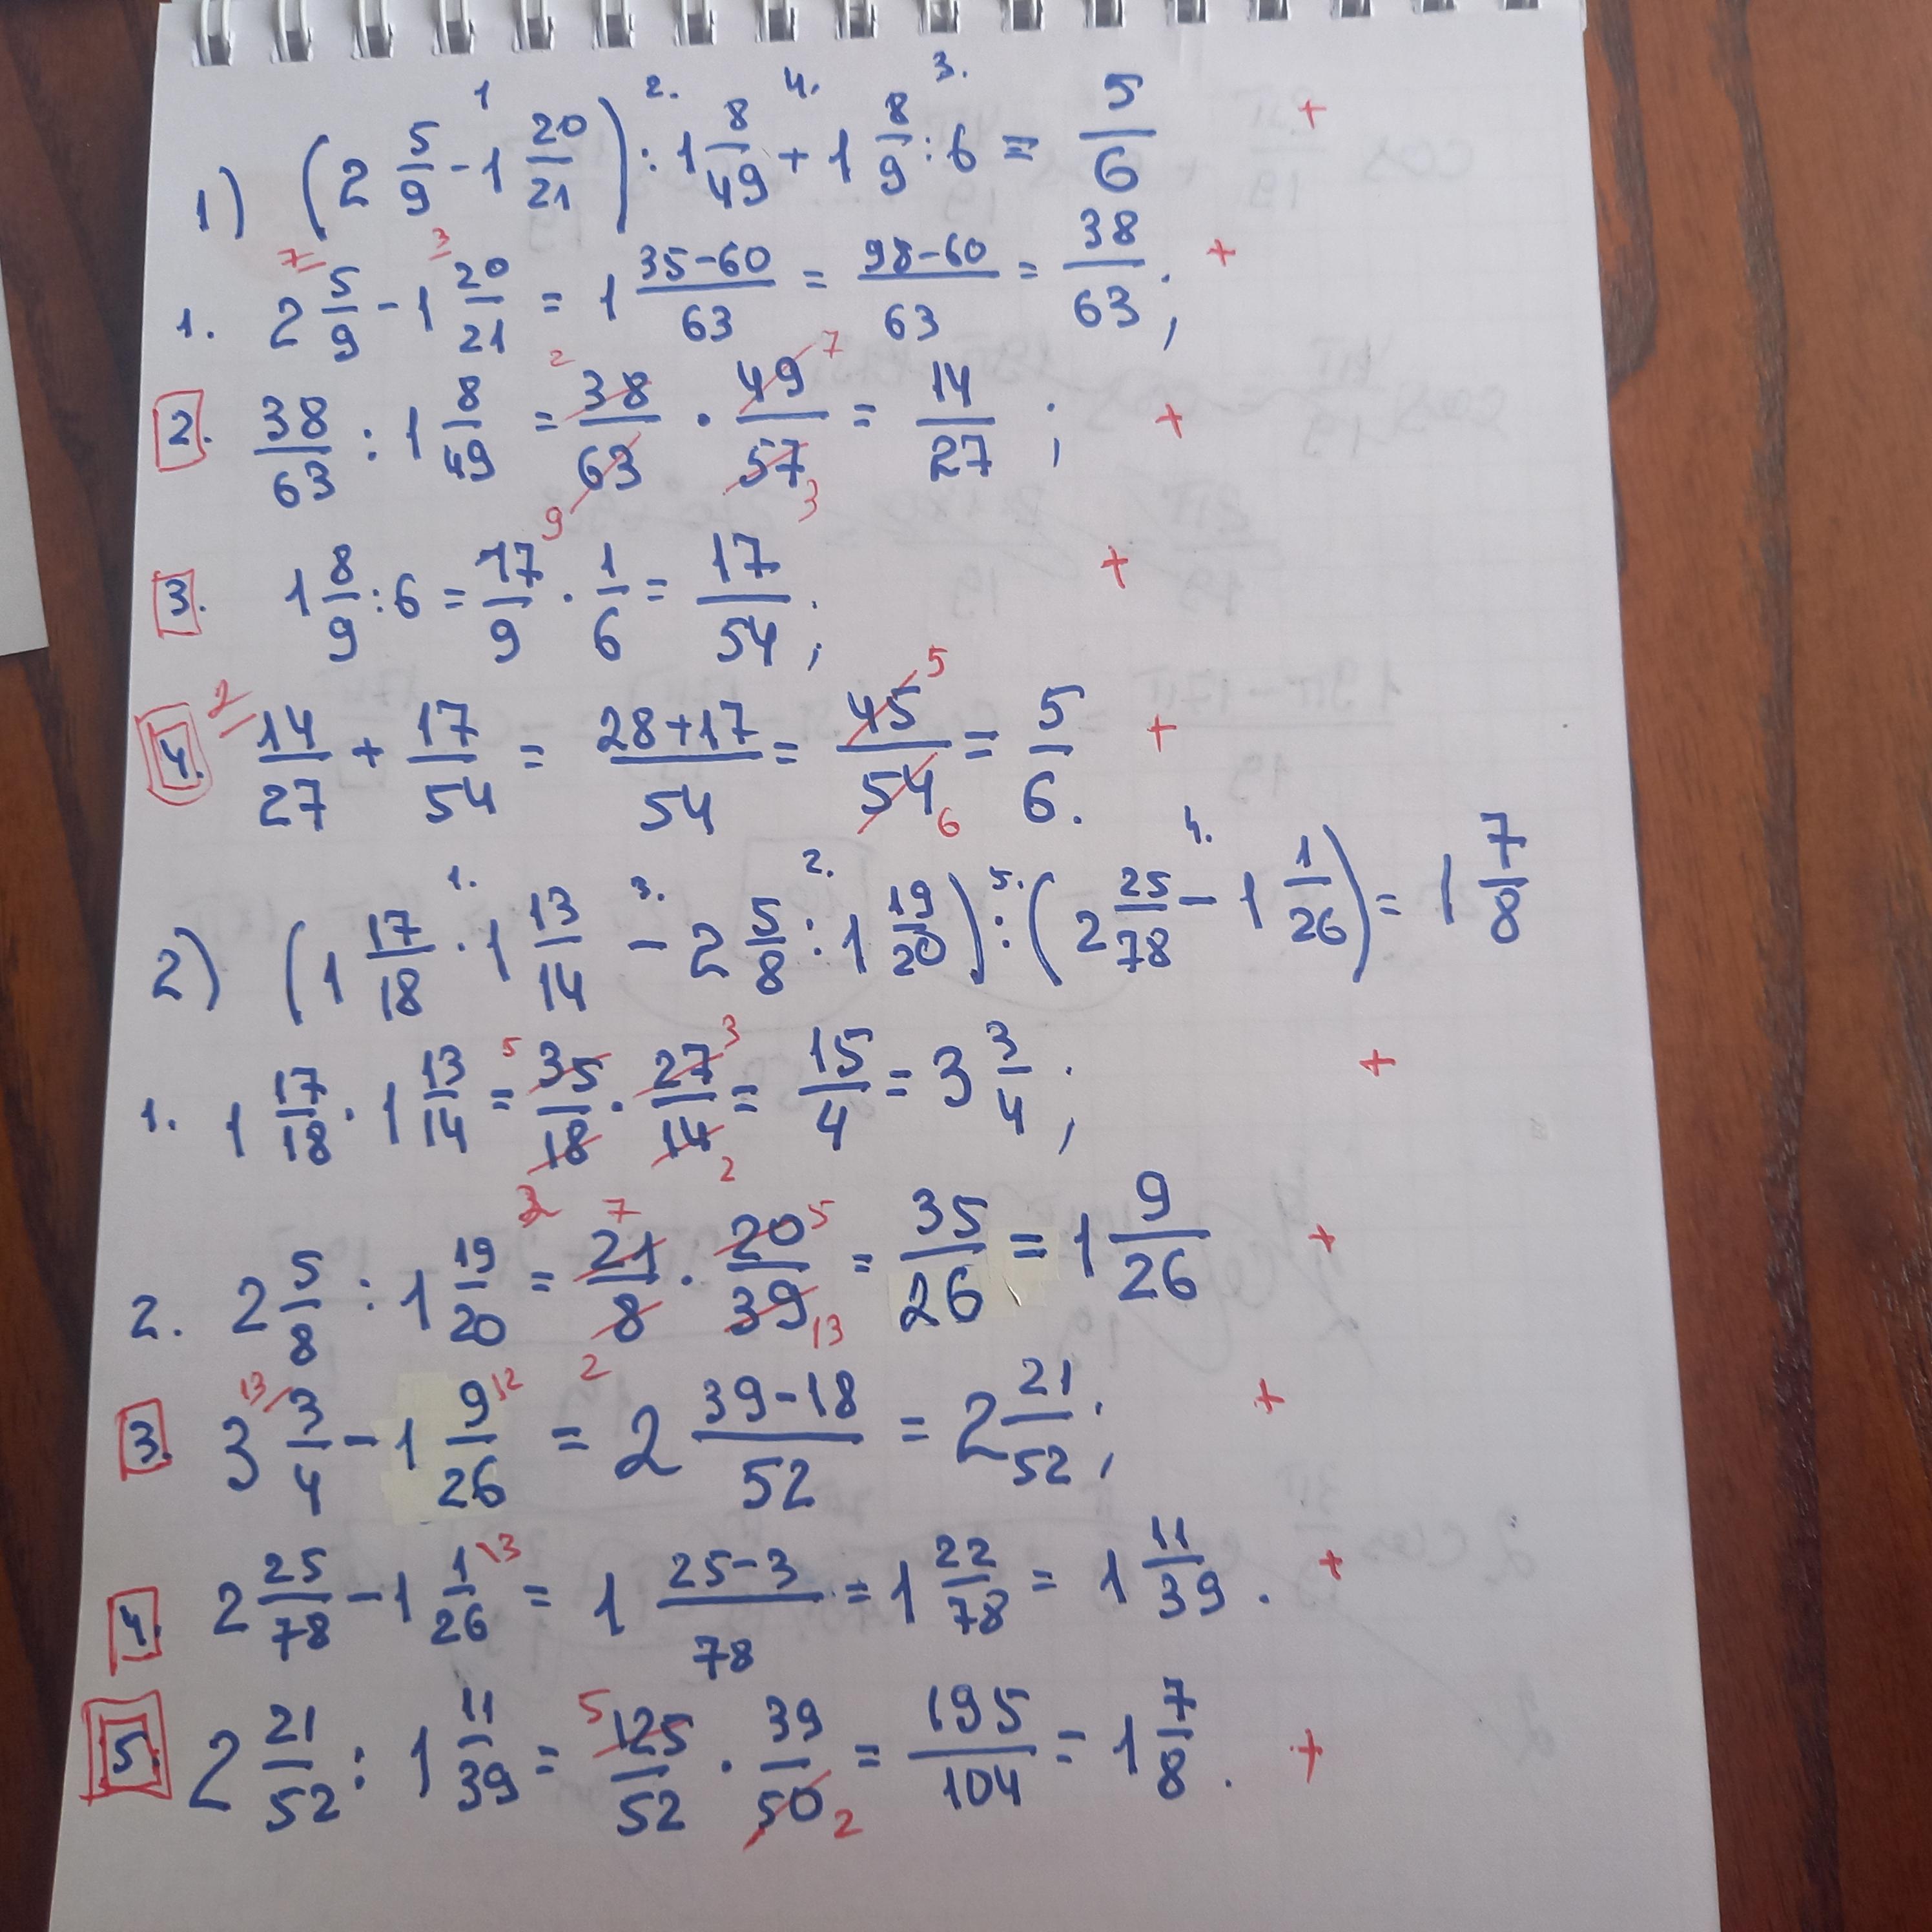 1) (2 5/9 - 1 20/21) : 1 8/49 + 1 8/9 : 6 = 5/6 +
1. 2 5/9 - 1 20/21 = 1 (35-60)/63 = (98-60)/63 = 38/63 ; +
2. 38/63 : 1 8/49 = 38/63 · 49/57 = 14/27 ; +
3. 1 8/9 : 6 = 17/9 · 1/6 = 17/54 ; +
4. 14/27 + 17/54 = (28+17)/54 = 45/54 = 5/6 . +
2) (1 17/18 · 1 13/14 - 2 5/8 : 1 19/20) : (2 25/78 - 1 1/26) = 1 7/8
1. 1 17/18 · 1 13/14 = 35/18 · 27/14 = 15/4 = 3 3/4 ; +
2. 2 5/8 : 1 19/20 = 21/8 · 20/39 = 35/26 = 1 9/26 +
3. 3 3/4 - 1 9/26 = 2 (39-18)/52 = 2 21/52 ; +
4. 2 25/78 - 1 1/26 = 1 (25-3)/78 = 1 22/78 = 1 11/39 . +
5. 2 21/52 : 1 11/39 = 125/52 · 39/50 = 195/104 = 1 7/8 . +